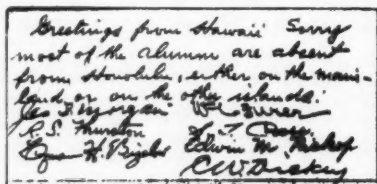 Greetings from Hawaii Sorry
most of the alumni are absent
from Honolulu, either on the main-
land or on the other islands.
Jas. F. Morgan
R. S. Thurston
Edwin M. Bishop
Lyman H. Bigelow
C. W. Dickey